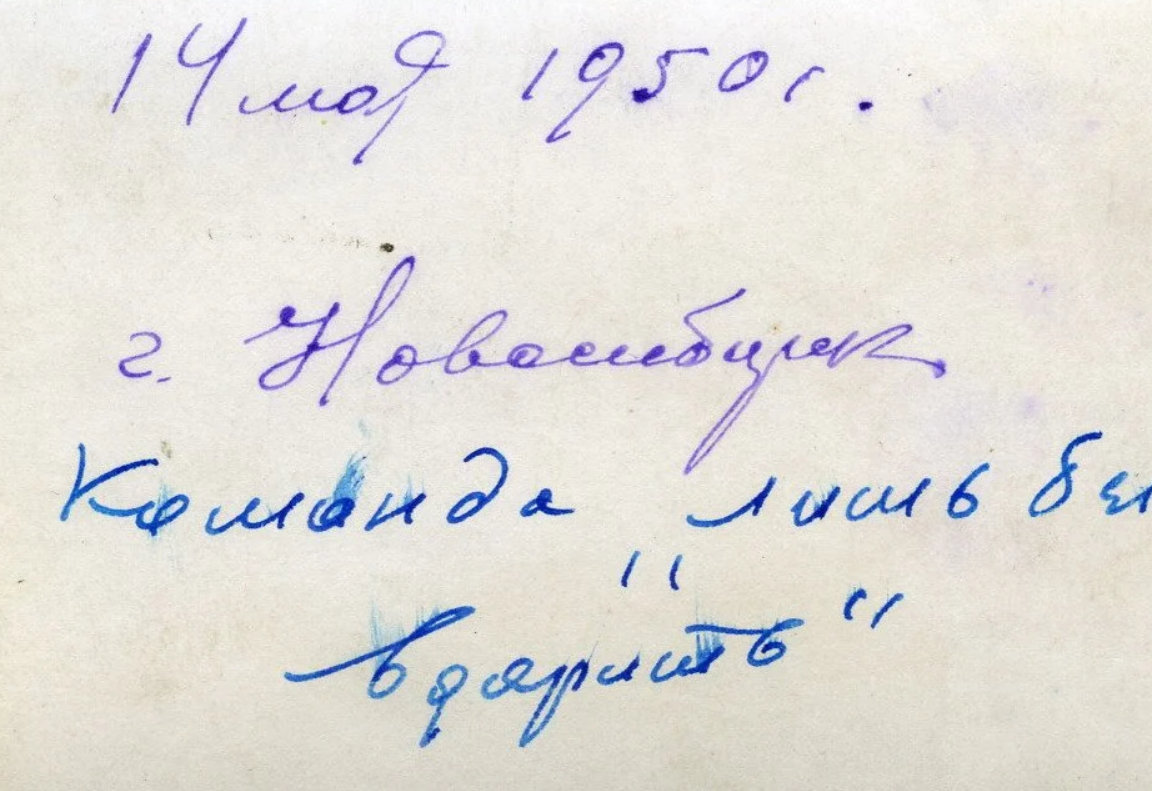 14 мая 1950г.
г. Новосибирск
Команда "лишь бы
вдарить"